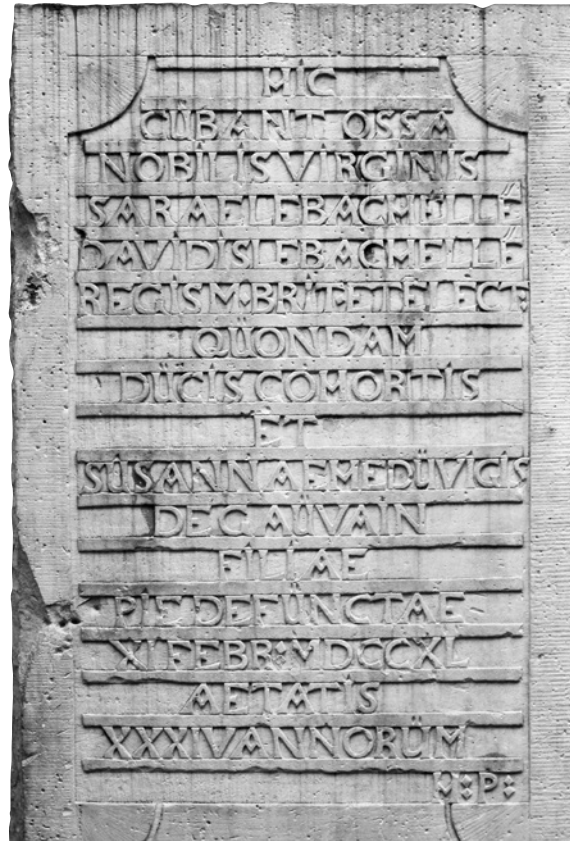 HIC
CŬBANT OSSA
NOBILIS VIRGINIS
SARAE LEBACHELLÉ
DAVIDIS LEBACHELLÉ
REGIS M·BRIT·ET ELECT:
QŬONDAM
DŬCIS COHORTIS
ET
SŬSANNAE HEDŬVIGIS
DE GAŬVAIN
FILIAE
PIE DEFŬNCTAE
XI FEBR: MDCCXL
AETATIS
XXXIV ANNORŬM